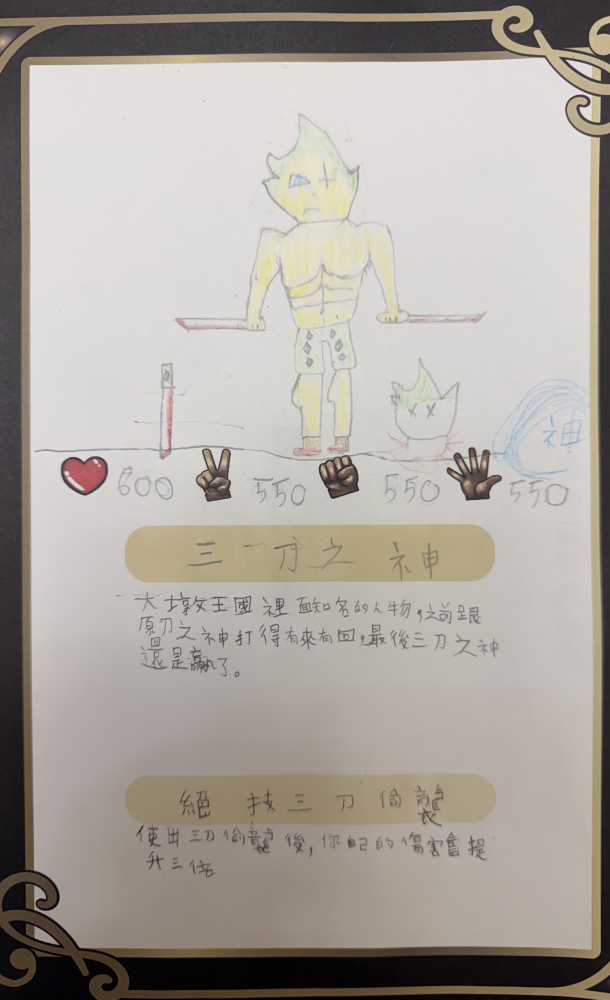 神
600 550 550 550
三刀之神
大墩王國裡面知名的人物,之前跟
原刀之神打得有來有回,最後三刀之神
還是贏了。
絕技三刀偷襲
使出三刀偷襲後,你自己的傷害會提
升三倍